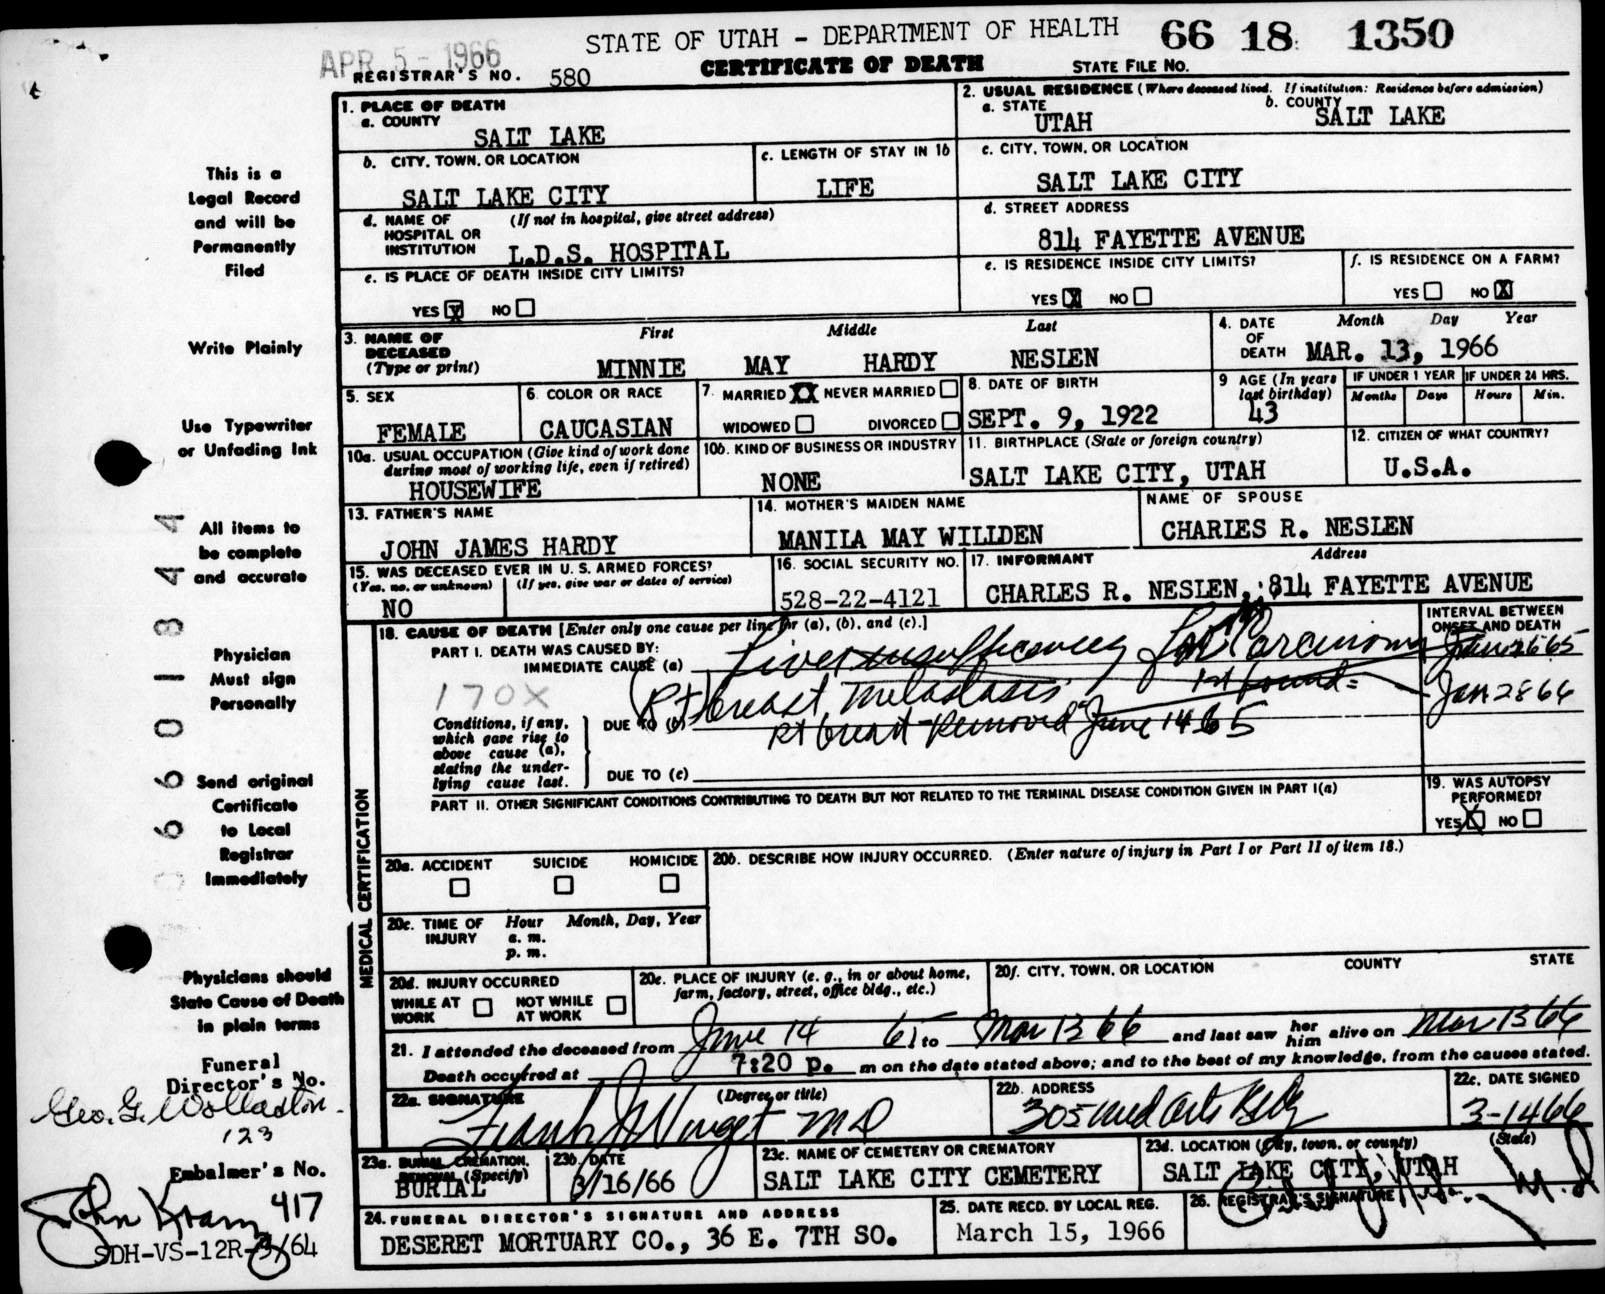 APR 5 - 1966
STATE OF UTAH - DEPARTMENT OF HEALTH 66 18 1350
REGISTRAR'S NO. 580 CERTIFICATE OF DEATH STATE FILE NO.
1. PLACE OF DEATH
a. COUNTY
SALT LAKE
2. USUAL RESIDENCE (Where deceased lived. If institution: Residence before admission)
a. STATE UTAH b. COUNTY SALT LAKE
b. CITY, TOWN, OR LOCATION
SALT LAKE CITY
c. LENGTH OF STAY IN 1b
LIFE
c. CITY, TOWN, OR LOCATION
SALT LAKE CITY
d. NAME OF HOSPITAL OR INSTITUTION (If not in hospital, give street address)
L.D.S. HOSPITAL
d. STREET ADDRESS
814 FAYETTE AVENUE
e. IS PLACE OF DEATH INSIDE CITY LIMITS?
YES X NO
e. IS RESIDENCE INSIDE CITY LIMITS?
YES X NO
f. IS RESIDENCE ON A FARM?
YES NO X
3. NAME OF DECEASED (Type or print)
First Middle Last
MINNIE MAY HARDY NESLEN
4. DATE OF DEATH Month Day Year
MAR. 13, 1966
5. SEX
FEMALE
6. COLOR OR RACE
CAUCASIAN
7. MARRIED XX NEVER MARRIED
WIDOWED DIVORCED
8. DATE OF BIRTH
SEPT. 9, 1922
9 AGE (In years last birthday)
43
IF UNDER 1 YEAR IF UNDER 24 HRS.
Months Days Hours Min.
10a. USUAL OCCUPATION (Give kind of work done during most of working life, even if retired)
HOUSEWIFE
10b. KIND OF BUSINESS OR INDUSTRY
NONE
11. BIRTHPLACE (State or foreign country)
SALT LAKE CITY, UTAH
12. CITIZEN OF WHAT COUNTRY?
U.S.A.
13. FATHER'S NAME
JOHN JAMES HARDY
14. MOTHER'S MAIDEN NAME
MANILA MAY WILLDEN
NAME OF SPOUSE
CHARLES R. NESLEN
15. WAS DECEASED EVER IN U. S. ARMED FORCES?
(Yes, no, or unknown) (If yes, give war or dates of service)
NO
16. SOCIAL SECURITY NO.
528-22-4121
17. INFORMANT Address
CHARLES R. NESLEN, 814 FAYETTE AVENUE
MEDICAL CERTIFICATION
18. CAUSE OF DEATH [Enter only one cause per line for (a), (b), and (c).]
INTERVAL BETWEEN ONSET AND DEATH
PART I. DEATH WAS CAUSED BY:
IMMEDIATE CAUSE (a) Liver insufficiency Carcinoma
170X
Rt breast, metastasis 1st found = Jan 28 66
Conditions, if any, which gave rise to above cause (a), stating the underlying cause last.
DUE TO (b) Rt breast Removed June 14 65
DUE TO (c)
PART II. OTHER SIGNIFICANT CONDITIONS CONTRIBUTING TO DEATH BUT NOT RELATED TO THE TERMINAL DISEASE CONDITION GIVEN IN PART I(a)
19. WAS AUTOPSY PERFORMED?
YES X NO
20a. ACCIDENT SUICIDE HOMICIDE
20b. DESCRIBE HOW INJURY OCCURRED. (Enter nature of injury in Part I or Part II of item 18.)
20c. TIME OF INJURY Hour Month, Day, Year
a. m.
p. m.
20d. INJURY OCCURRED
WHILE AT WORK NOT WHILE AT WORK
20e. PLACE OF INJURY (e. g., in or about home, farm, factory, street, office bldg., etc.)
20f. CITY, TOWN, OR LOCATION COUNTY STATE
21. I attended the deceased from June 14 65 to Mar 13 66 and last saw her him alive on Mar 13 66
Death occurred at 7:20 p. m on the date stated above; and to the best of my knowledge, from the causes stated.
22a. SIGNATURE (Degree or title)
Frank J Winget MD
22b. ADDRESS
305 Med Arts Bldg
22c. DATE SIGNED
3-14 66
23a. BURIAL, CREMATION, REMOVAL (Specify)
BURIAL
23b. DATE
3/16/66
23c. NAME OF CEMETERY OR CREMATORY
SALT LAKE CITY CEMETERY
23d. LOCATION (City, town, or county) (State)
SALT LAKE CITY, UTAH
24. FUNERAL DIRECTOR'S SIGNATURE AND ADDRESS
DESERET MORTUARY CO., 36 E. 7TH SO.
25. DATE RECD. BY LOCAL REG.
March 15, 1966
26. REGISTRAR'S SIGNATURE
M.D
This is a
Legal Record
and will be
Permanently
Filed
Write Plainly
Use Typewriter
or Unfading Ink
All items to
be complete
and accurate
Physician
Must sign
Personally
Send original
Certificate
to Local
Registrar
Immediately
Physicians should
State Cause of Death
in plain terms
Funeral
Director's No.
Geo. G. Wollaston
123
Embalmer's No.
417
John Kramer
SDH-VS-12R-3/64
6 6 0 1 8 4 4